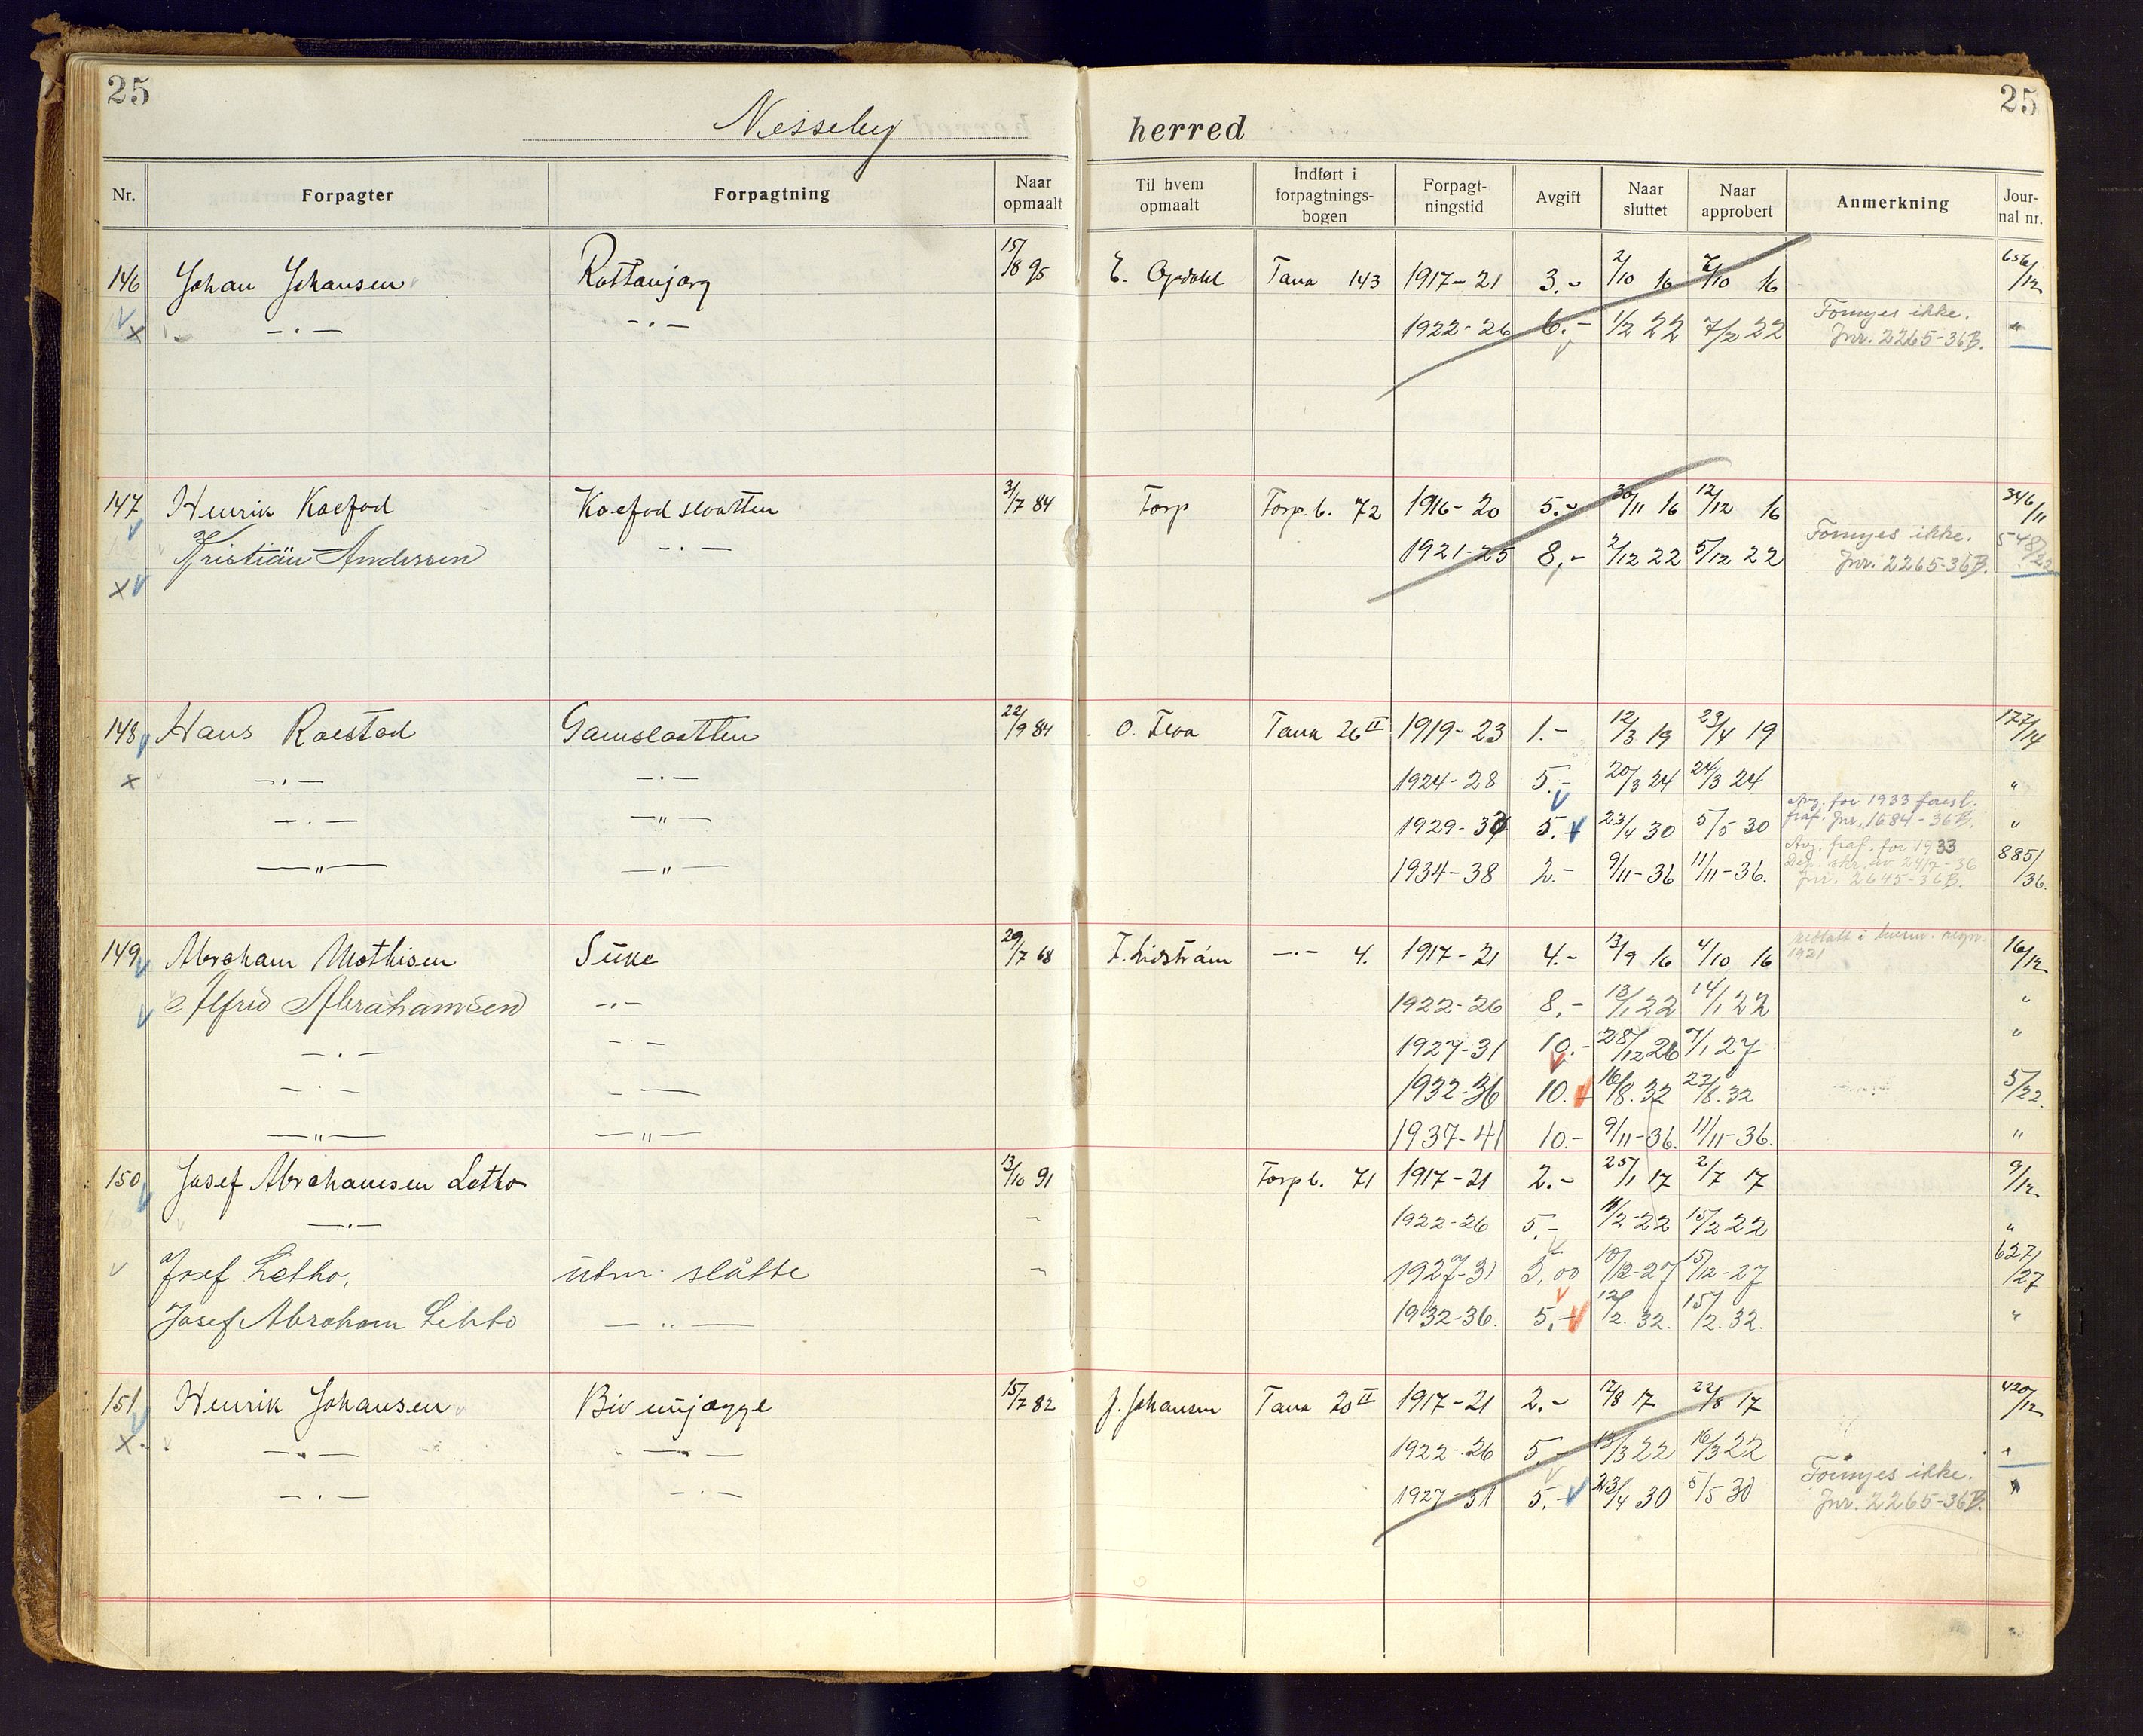 25
25
Nesseby herred
Nr. Forpagter Forpagtning Naar opmaalt Til hvem opmaalt Indført i forpagtnings-bogen Forpagt-ningstid Avgift Naar sluttet Naar approbert Anmerkning Jour-nal nr.
146 Johan Johansen Rottanjarg 15/8 95 E. Opdahl Tana 143 1917-21 3.- 2/10 16 7/10 16 656/12
-"- -"- 1922-26 6.- 1/2 22 7/2 22 Fornyes ikke. Jnr. 2265-36B. "
147 Henrik Koefod Koefodslaatten 31/7 84 Torp Forp.b. 72 1916-20 5.- 30/11 16 12/12 16 346/11
Kristian Andersen -"- 1921-25 8,- 2/12 22 5/12 22 Fornyes ikke. Jnr. 2265-36B. 548/22
148 Hans Roestad Gamslaatten 22/9 84 Tana 26 II 1919-23 1.- 12/3 19 23/4 19 177/14
-"- -"- 1924-28 5.- 20/3 24 24/3 24 "
-"- -"- 1929-33 5.- 23/4 30 5/5 30 Avg. for 1933 fraf. Jnr. 1684-36B. "
-"- -"- 1934-38 2.- 9/11-36 11/11-36. Avg. fraf. for 1933 Dep. skr. av 24/7-36 Jnr. 2645-36B. 885/36.
149 Abraham Mathisen Suke 29/7 68 F. Lidstrøm -"- 4. 1917-21 4.- 13/9 16 4/10 16 1921 16/12
Alfred Abrahamsen -"- 1922-26 8,- 13/1 22 14/1 22 "
-"- -"- 1927-31 10.- 28/12 26 7/1 27 "
-"- -"- 1932-36 10.- 16/8.32 22/8.32 5/22.
-"- -"- 1937-41 10.- 9/11-36. 11/11-36. "
150 Josef Abrahamsen Letho 13/10 91 Forp b. 71 1917-21 2.- 25/1 17 2/7 17 9/12
-"- - 1922-26 5,- 11/2-22 15/2 22 "
Josef Letho, utm. slåtte - 1927-31 5,00 10/12-27 15/12-27 627/27
Josef Abraham Lehto -"- 1932-36. 5,- 12/2.32. 15/2.32. "
151 Henrik Johansen Bivunjagge 15/7 82 J. Johansen Tana 20 II 1917-21 2.- 17/8 17 22/8 17 420/12
-"- -"- 1922-26 5.- 13/3 22 16/3 22 "
-"- -"- 1927-31 5.- 23/4 30 5/5 30 Fornyes ikke. Jnr. 2265-36B. "